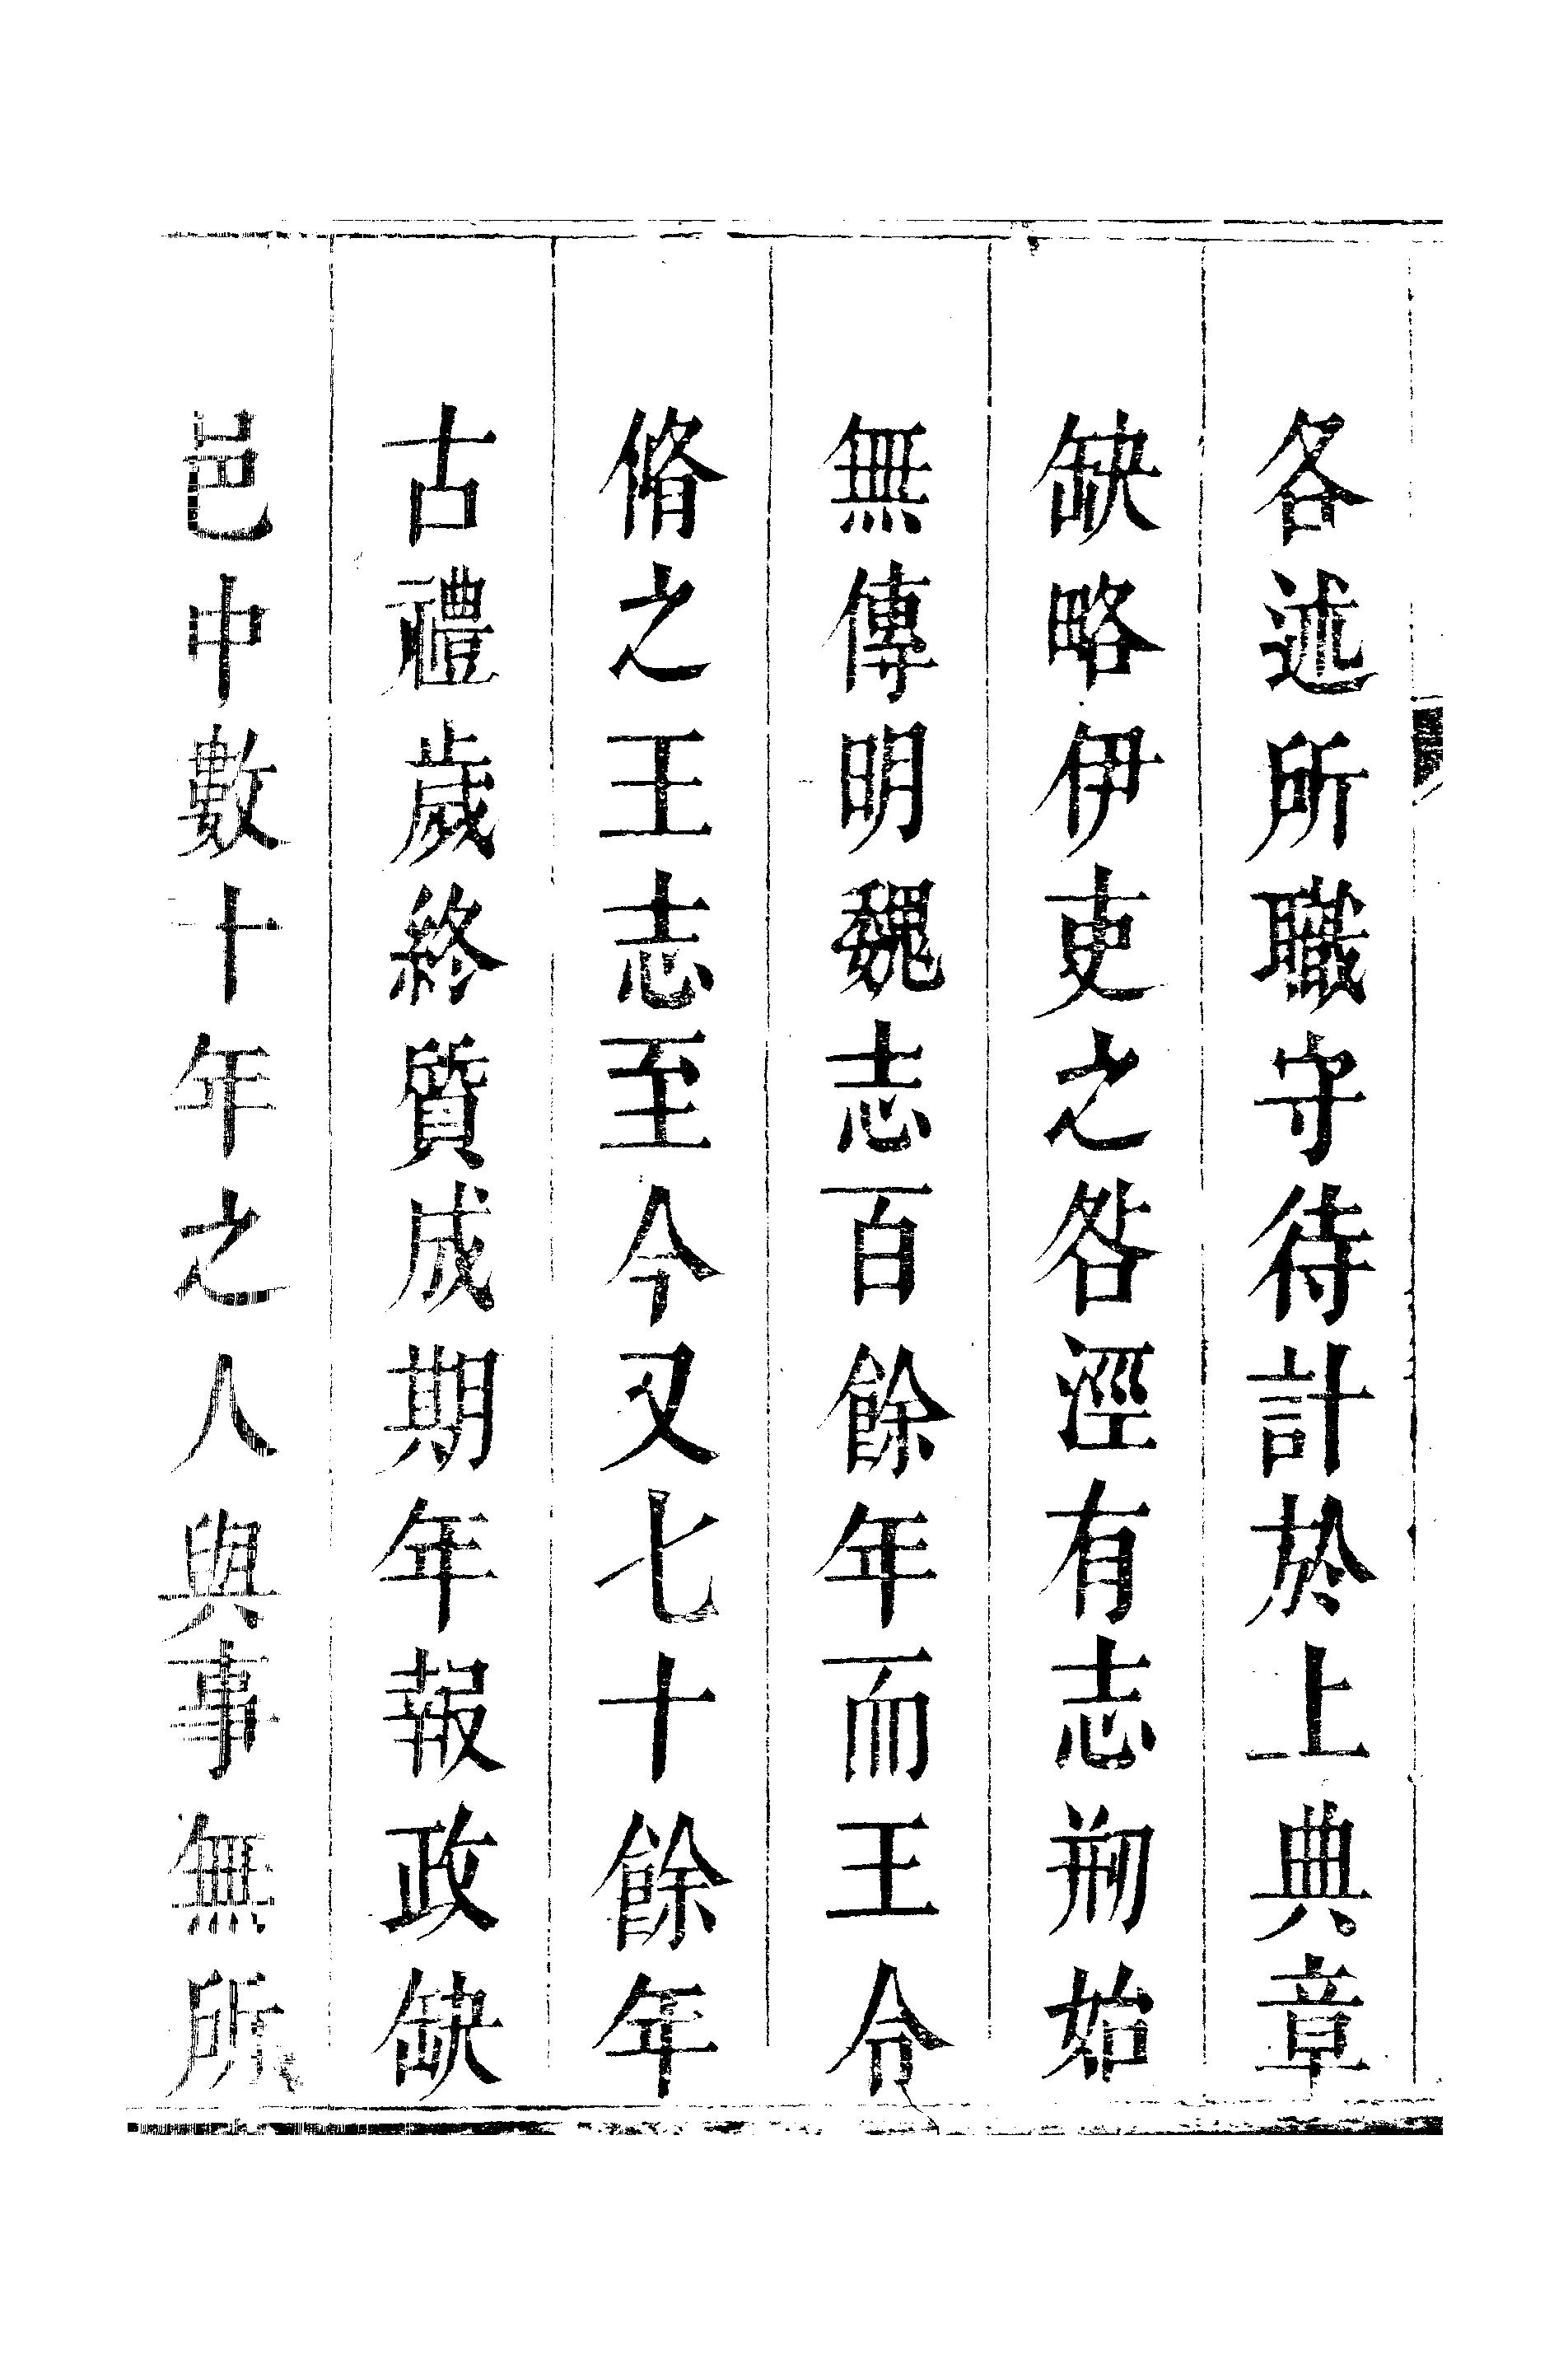 各述所職守待計於上典章
缺略伊吏之咎涇有志剏始
無傳明魏志百餘年而王令
脩之王志至今又七十餘年
古禮歲終質成期年報政缺
邑中數十年之人與事無所